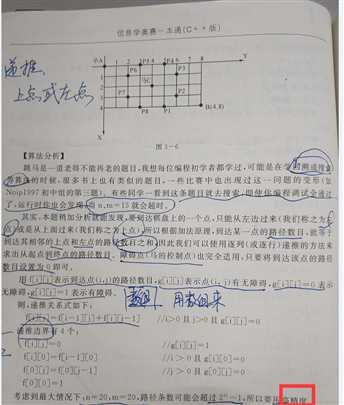 信息学奥赛一本通(C++版)
递推
上点或左点
小A
Y
P6
P5
P4
P3
P7
C
P8
P1
X
B(4,8)
图 3-6
【算法分析】
跳马是一道老得不能再老的题目,我想每位编程初学者都学过,可能是在学
的时候,很多书上也有类似的题目,一些比赛中也出现过这一问题的变形(如
Noip1997初中组的第三题)。有些同学一看到这条题目就去搜索,即使你编程调试全通过
了,运行时你也会发现:当n,m=15就会超时。
其实,本题稍加分析就能发现,要到达棋盘上的一个点,只能从左边过来(我们称之为左
点)或是从上面过来(我们称之为上点),所以根据加法原理,到达某一点的路径数目,就等于
到达其相邻的上点和左点的路径数目之和,因此我们可以使用逐列(或逐行)递推的方法来
求出从起点到终点的路径数目。障碍点(马的控制点)也完全适用,只要将到达该点的路径
数目设置为0即可。
用f[i][j]表示到达点(i,j)的路径数目,g[i][j]表示点(i,j)有无障碍,g[i][j]=0表示
无障碍,g[i][j]=1表示有障碍。
用数组来
则,递推关系式如下:
f[i][j]=f[i-1][j]+f[i][j-1] //i>0且j>0且g[i][j]=0
递推边界有4个:
f[i][j]=0 //g[i][j]=1
f[i][0]=f[i-1][0] //i>0且g[i][0]=0
f[0][j]=f[0][j-1] //j>0且g[0][j]=0
f[0][0]=1
考虑到最大情况下:n=20,m=20,路径条数可能会超过2
-1,所以要
高精度